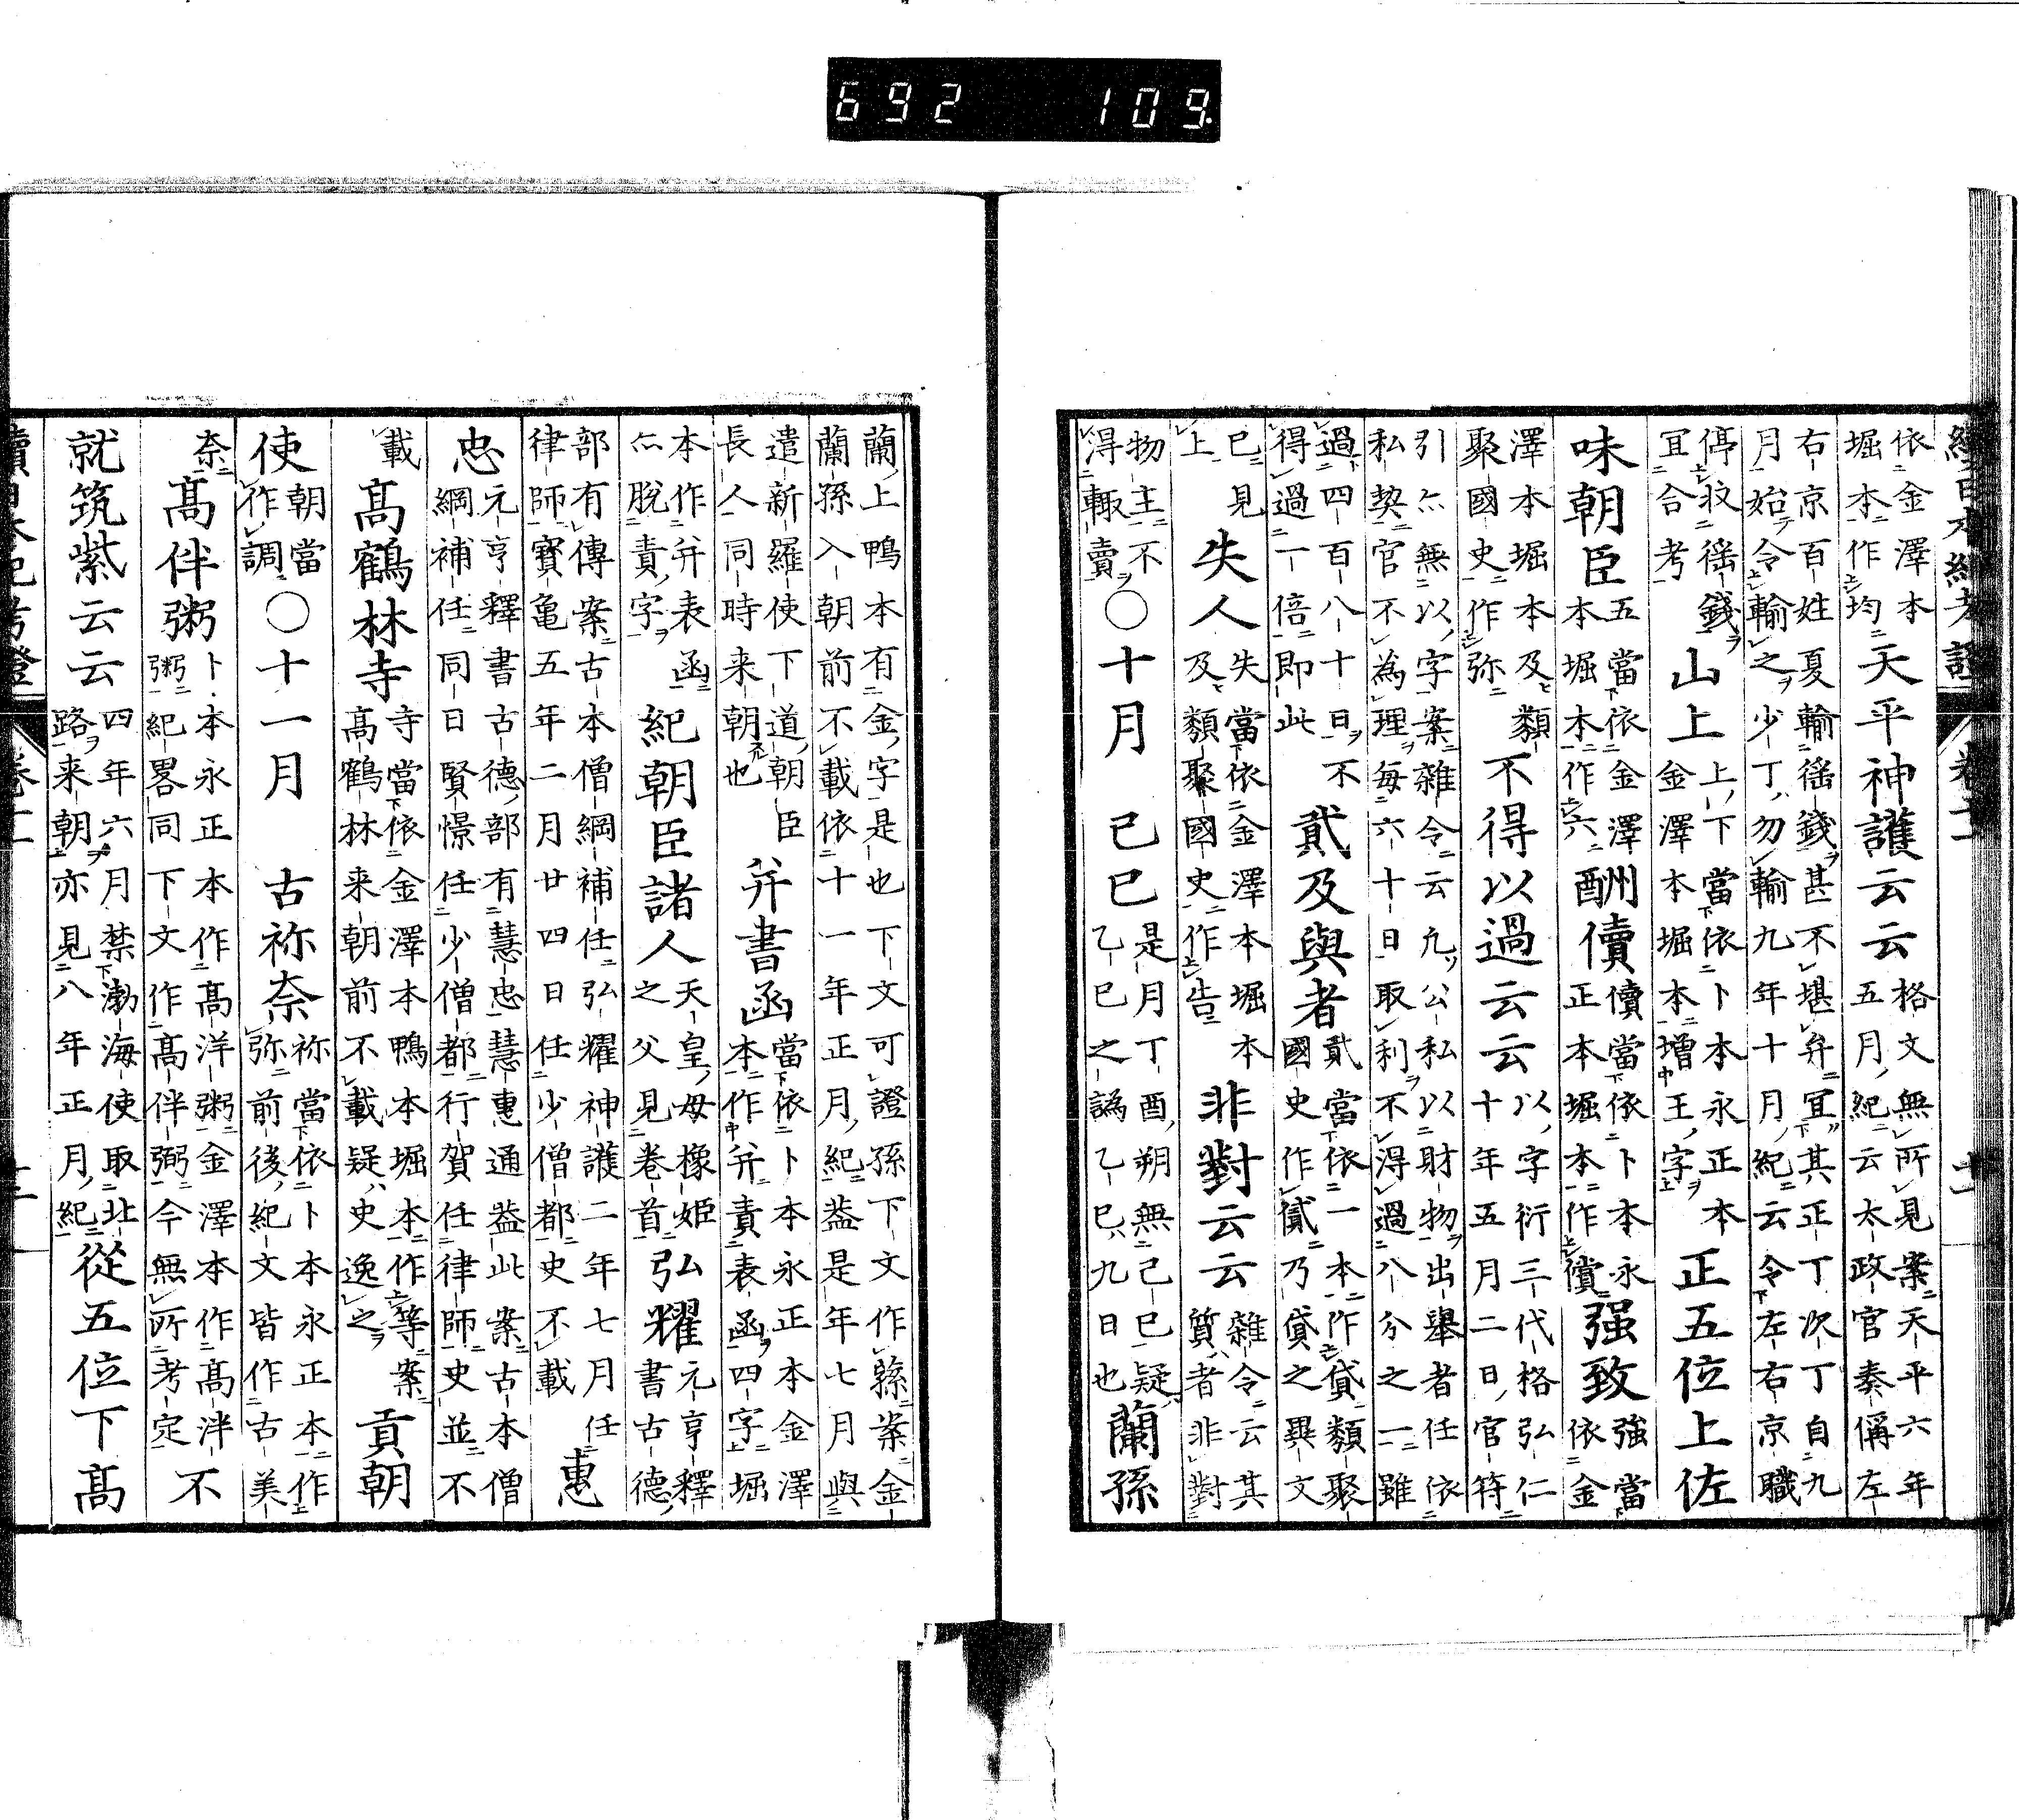 續日本紀考證
依金澤本堀本作均天平神護云云格文無所見案天平六年五月紀云太政官奏偁左
右京百姓夏輸徭錢甚不堪弁宜其正丁次丁自九月始令輸之少丁勿輸九年十月紀云令左右京職
停收徭錢宜合考山上上下當依卜本永正本金澤本堀本增王字正五位上佐
味朝臣五當依金澤本堀本作六酬儥儥當依卜本永正本堀本作償强致強當依金
澤本堀本及類聚國史作弥不得以過云云以字衍三代格弘仁十年五月二日官符
引亦無以字案雜令云凢公私以財物出舉者任依私契官不為理每六十日取利不得過八分之一雖
過四百八十日不得過一倍即此貳及與者貳當依一本作貸類聚國史作貳乃貸之異文
已見上失人失當依金澤本堀本及類聚國史作告非對云云雜令云其質者非對
物主不得輙賣○十月己巳是月丁酉朔無己巳疑乙巳之譌乙巳九日也蘭孫
蘭上鴨本有金字是也下文可證孫下文作蓀案金蘭孫入朝前不載依十一年正月紀蓋是年七月與
遣新羅使下道朝臣長人同時来朝也并書函當依卜本永正本金澤本作并責表函四字堀
本作并表函亦脫責字紀朝臣諸人天皇母橡姫之父見卷首弘耀元亨釋書古德
部有傳案古本僧綱補任弘耀神護二年七月任律師寶亀五年二月廿四日任少僧都史不載惠
忠元亨釋書古德部有慧忠慧惠通蓋此案古本僧綱補任同日賢憬任少僧都行賀任律師史並不
載高鶴林寺寺當依金澤本鴨本堀本作等案高鶴林来朝前不載疑史逸之貢朝
使朝當作調○十一月古祢奈祢當依卜本永正本作弥前後紀文皆作古美
奈高伴粥卜本永正本作高洋粥金澤本作高泮粥紀畧同下文作高伴弼今無所考定不
就筑紫云云四年六月禁渤海使取北路来朝亦見八年正月紀從五位下高
續日本紀考證